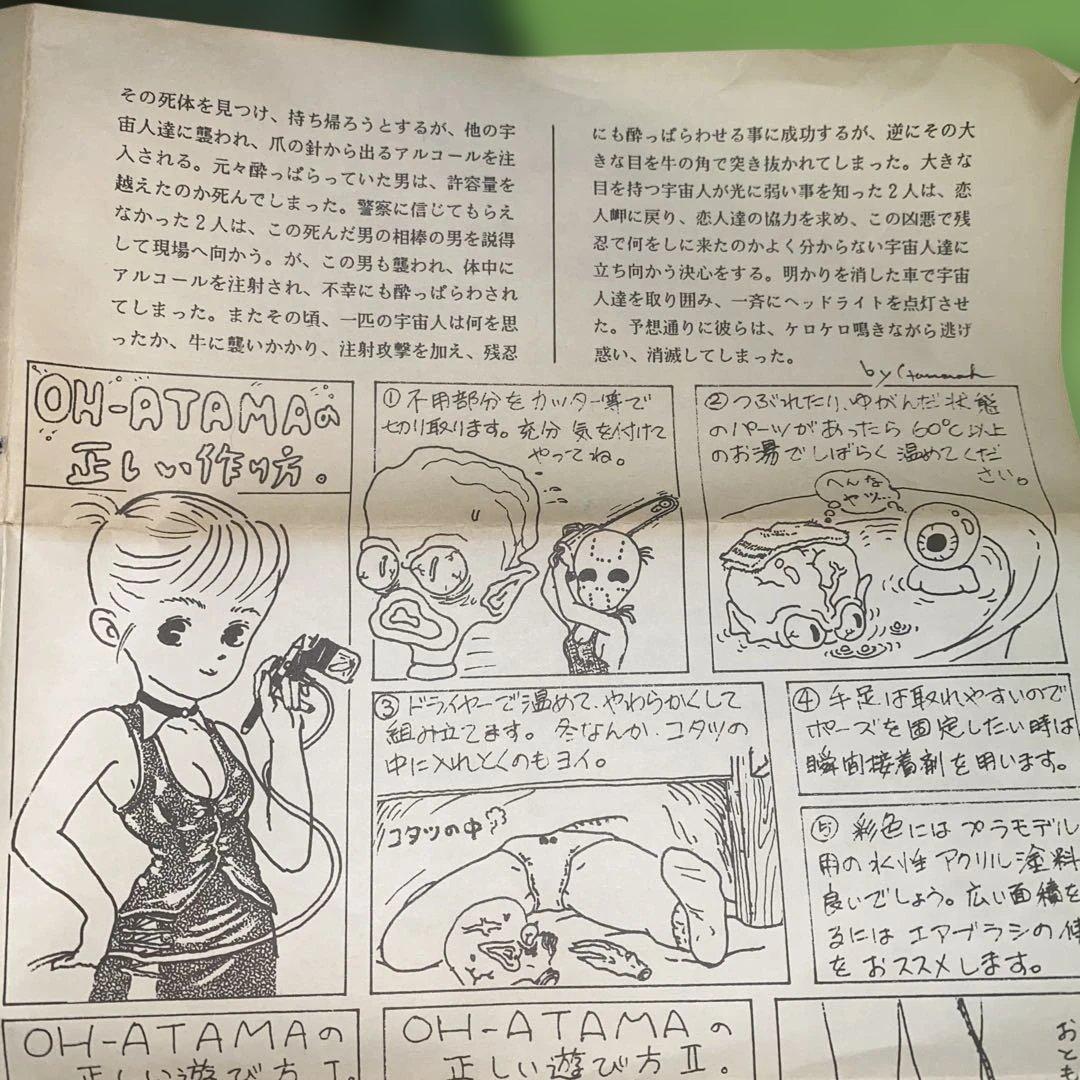 その死体を見つけ、持ち帰ろうとするが、他の宇
宙人達に襲われ、爪の針から出るアルコールを注
入される。元々酔っぱらっていた男は、許容量を
越えたのか死んでしまった。警察に信じてもらえ
なかった2人は、この死んだ男の相棒の男を説得
して現場へ向かう。が、この男も襲われ、体中に
アルコールを注射され、不幸にも酔っぱらわされ
てしまった。またその頃、一匹の宇宙人は何を思
ったか、牛に襲いかかり、注射攻撃を加え、残忍
にも酔っぱらわせる事に成功するが、逆にその大
きな目を牛の角で突き抜かれてしまった。大きな
目を持つ宇宙人が光に弱い事を知った2人は、恋
人岬に戻り、恋人達の協力を求め、この凶悪で残
忍で何をしに来たのかよく分からない宇宙人達に
立ち向かう決心をする。明かりを消した車で宇宙
人達を取り囲み、一斉にヘッドライトを点灯させ
た。予想通りに彼らは、ケロケロ鳴きながら逃げ
惑い、消滅してしまった。
by
OH-ATAMAの
正しい作り方。
① 不用部分をカッター等で
切り取ります。充分 気を付けて
やってね。
② つぶれたり、ゆがんだ状態
のパーツがあったら 60℃以上
のお湯でしばらく 温めてくだ
さい。
へんな
ヤツ…
③ ドライヤーで温めて、やわらかくして
組み立てます。冬なんか、コタツの
中に入れとくのもヨイ。
コタツの中
④ 手足は取れやすいので
ポーズを固定したい時は
瞬間接着剤を用います。
⑤ 彩色には プラモデル
用の水性アクリル塗料
良いでしょう。広い面積を
るには エアブラシの使
をおススメします。
OH-ATAMAの
正しい遊び方 I。
OH-ATAMAの
正しい遊び方 II。
おとも